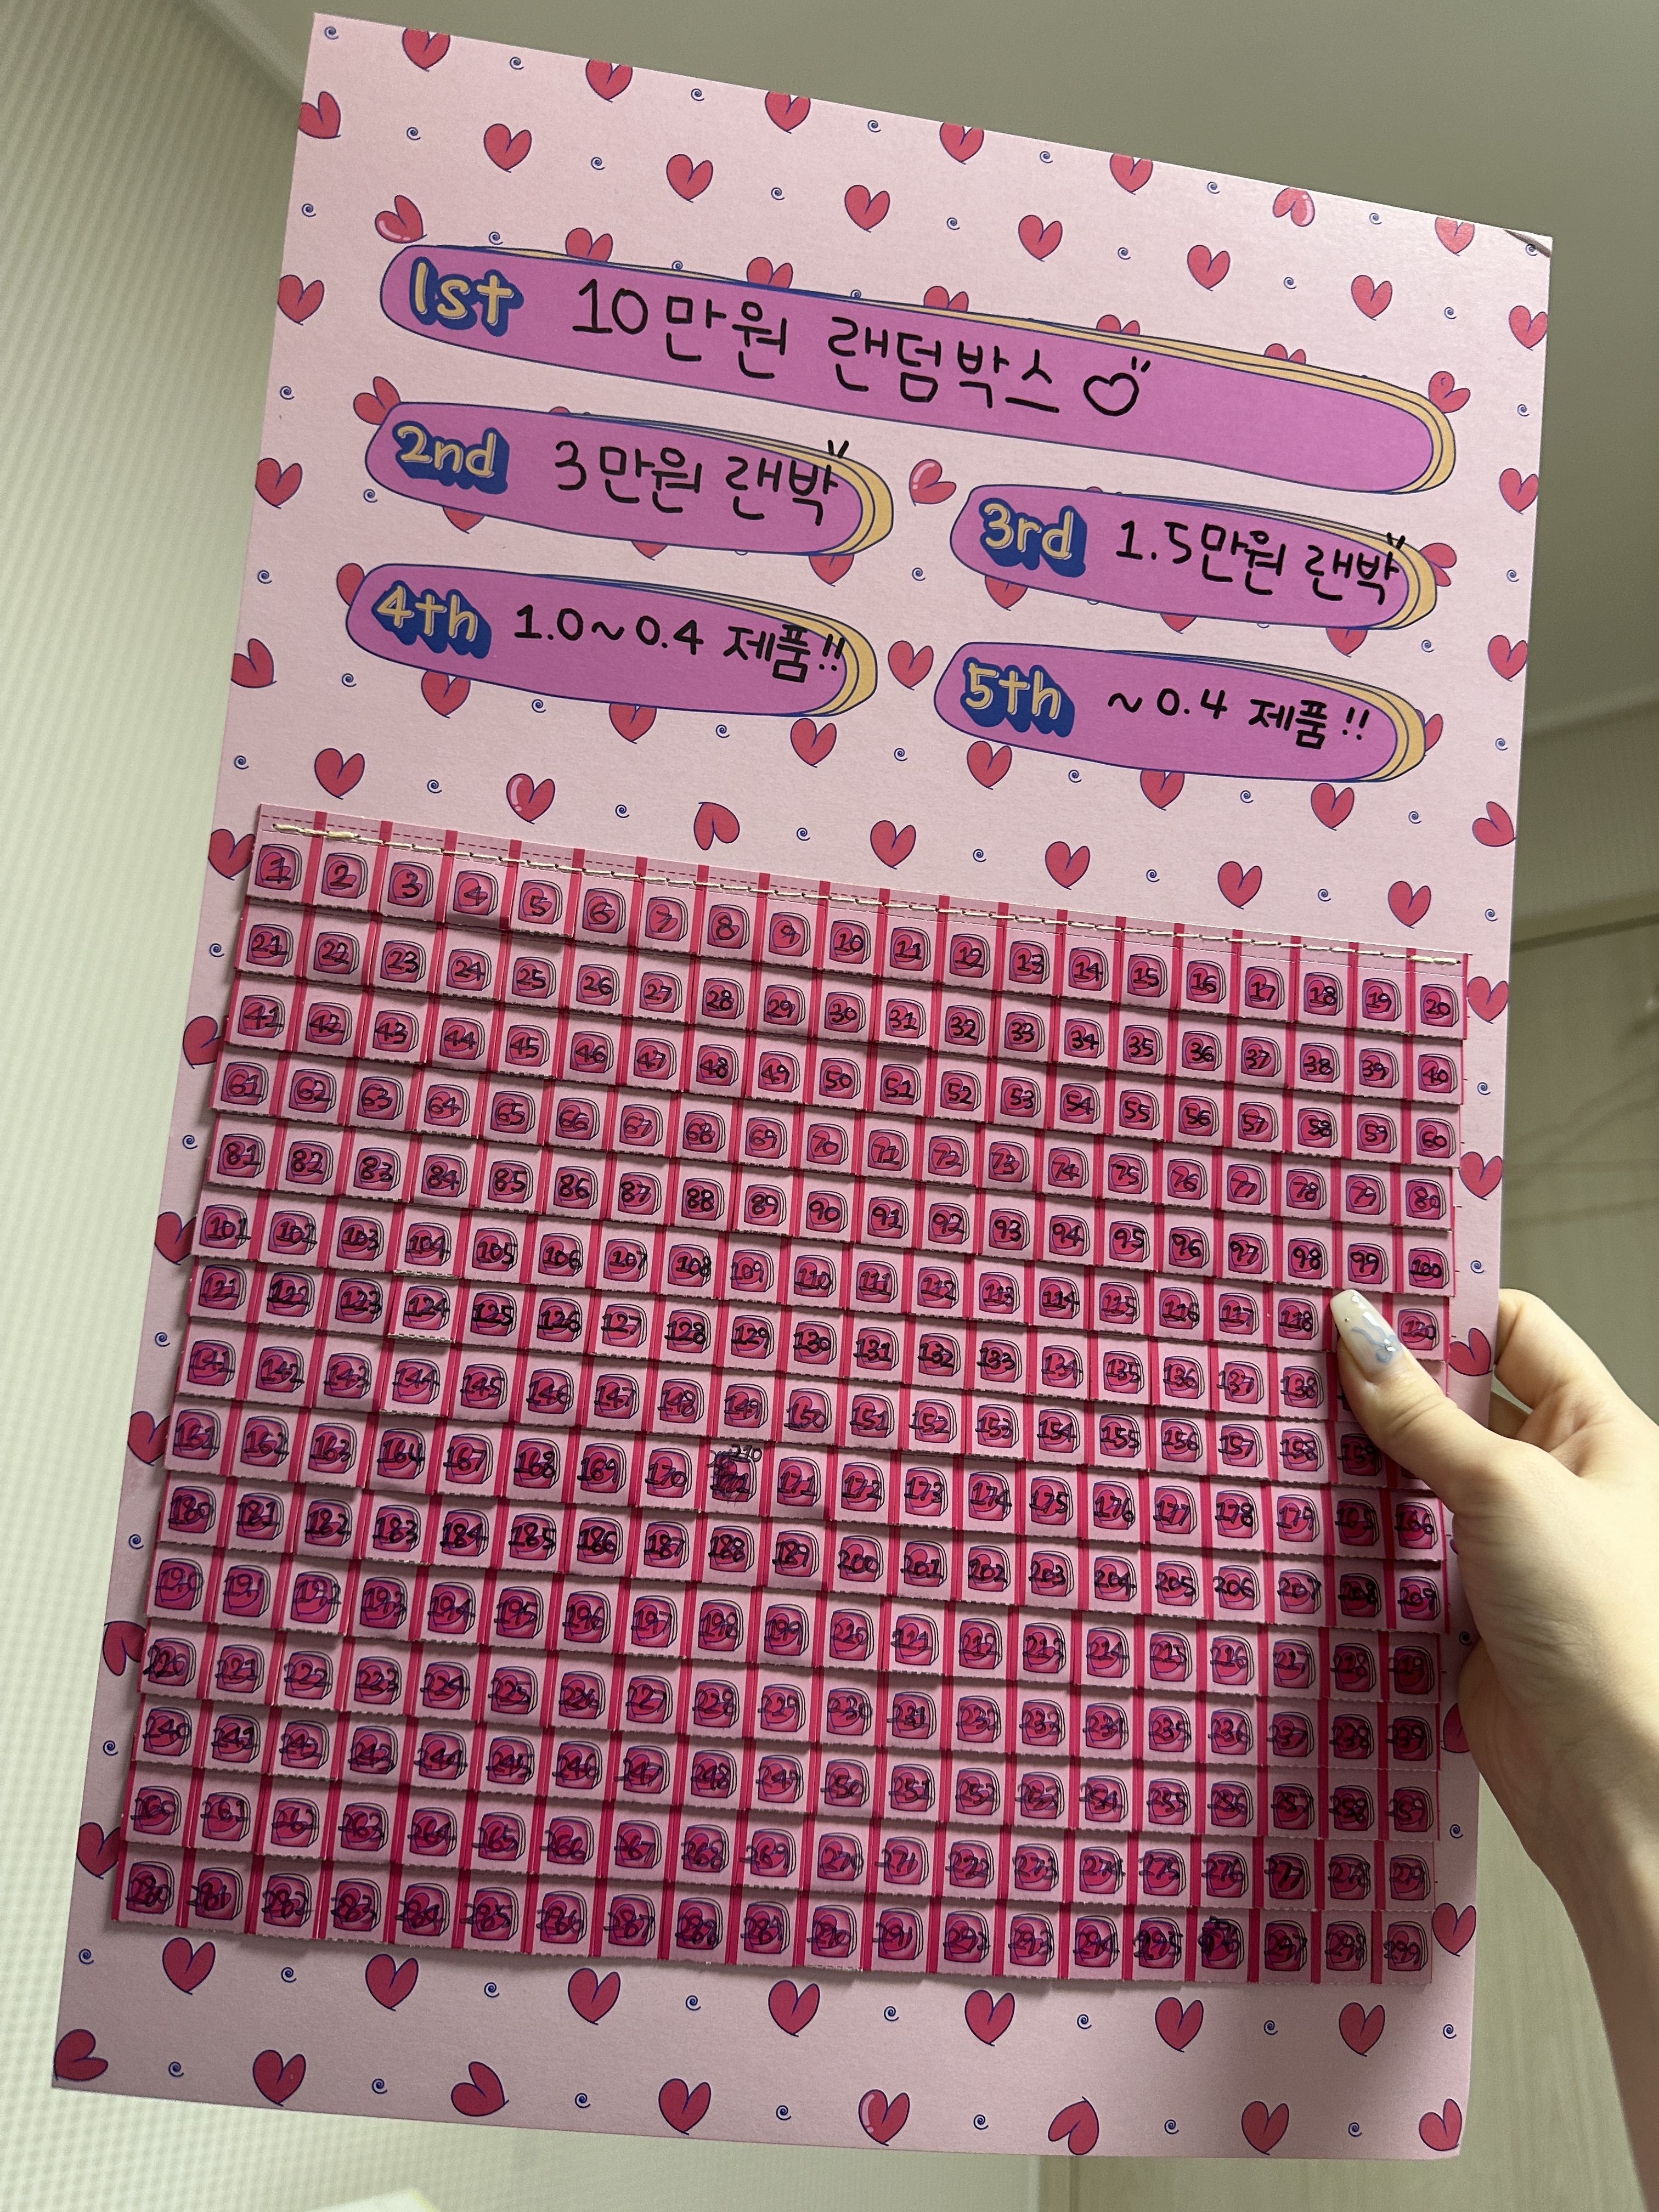 1st 10만원 랜덤박스
2nd 3만원 랜박
3rd 1.5만원 랜박
4th 1.0~0.4 제품!!
5th ~0.4 제품!!
1 2 3 4 5 6 7 8 9 10 11 12 13 14 15 16 17 18 19 20
21 22 23 24 25 26 27 28 29 30 31 32 33 34 35 36 37 38 39 40
41 42 43 44 45 46 47 48 49 50 51 52 53 54 55 56 57 58 59 60
61 62 63 64 65 66 67 68 69 70 71 72 73 74 75 76 77 78 79 80
81 82 83 84 85 86 87 88 89 90 91 92 93 94 95 96 97 98 99 100
101 102 103 104 105 106 107 108 109 110 111 112 113 114 115 116 117 118 120
121 122 123 124 125 126 127 128 129 130 131 132 133 134 135 136 137 138
141 142 143 144 145 146 147 148 149 150 151 152 153 154 155 156 157 158 159
161 162 163 164 167 168 169 170 210 171 172 173 174 175 176 177 178 179 166
180 181 182 183 184 185 186 187 188 189 200 201 202 203 204 205 206 207 208 209
190 191 192 193 194 195 196 197 198 199 212 213 214 215 216 217 218 219
220 221 222 223 224 225 226 227 228 229 230 231 232 233 234 235 236 237 238 239
240 241 242 243 244 245 246 247 248 249 250 251 252 253 254 255 256 257 258 259
260 261 262 263 264 265 266 267 268 269 270 271 272 273 274 275 276 277 278 279
280 281 282 283 284 285 286 287 288 289 290 291 293 294 295 297 298 299